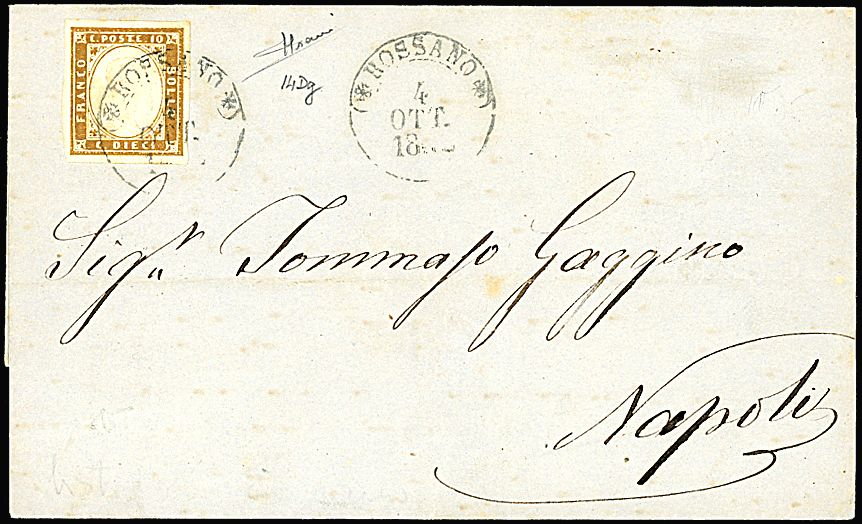 C. POSTE 10
FRANCO
BOLLO
C. DIECI
ROSSANO
ROSSANO
4
OTT.
14Dg
Sig.r Tommaso Gaggino
Napoli